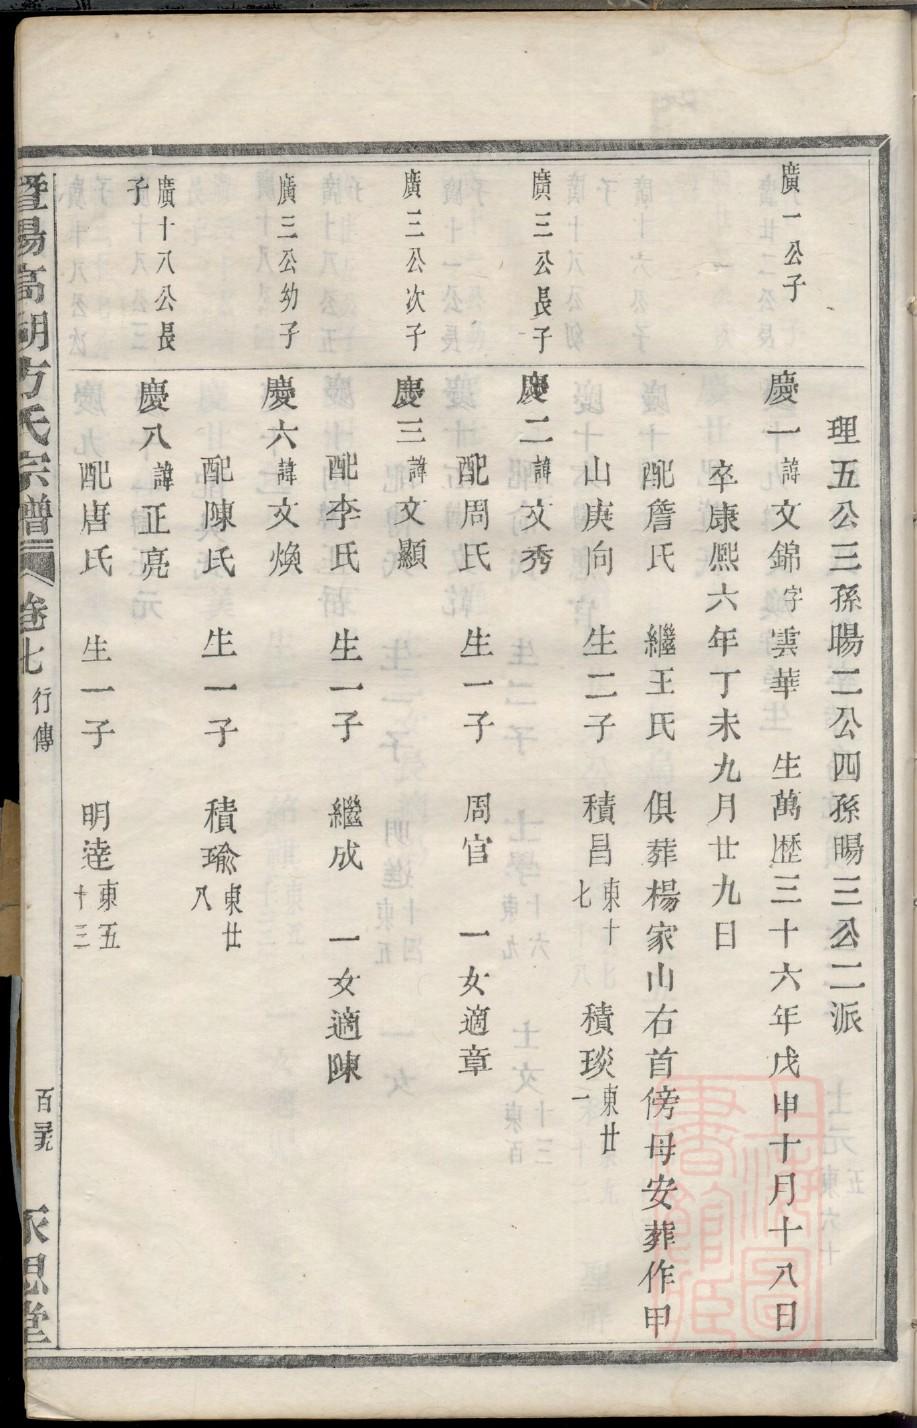 理五公三孫暘二公四孫暘三公二派
廣一公子
慶一諱文錦字雲華　生萬歷三十六年戊申十月十八日
卒康熙六年丁未九月廿九日
配詹氏　繼王氏　俱葬楊家山右首傍母安葬作甲
山庚向　生二子　積昌東十七　積琰東廿一
廣三公長子
慶二諱文秀
配周氏　生一子　周官　一女適章
廣三公次子
慶三諱文顯
配李氏　生一子　繼成　一女適陳
廣三公幼子
慶六諱文煥
配陳氏　生一子　積瑜東廿八
廣十八公長子
慶八諱正亮
配唐氏　生一子　明逵東五十三
暨陽高湖方氏宗譜　卷七　行傳　永思堂